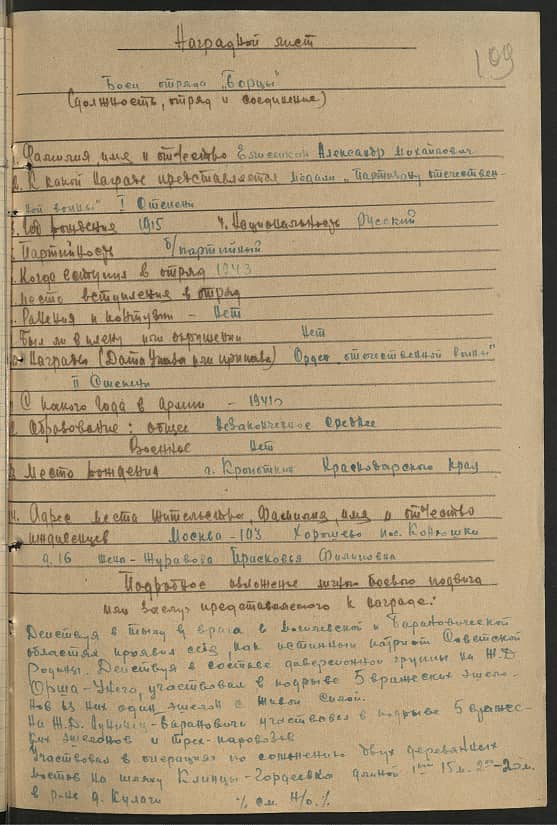 Наградной лист
199
Боец отряда "Борцы"
(должность, отряд и соединение)
1. Фамилия имя и отчество Александр Михайлович
2. К какой награде представляется медали „Партизану отечествен-
ной войны" I Степени
3. Год рождения 1915 4. Национальность Русский
5. Партийность б/партийный
6. Когда вступил в отряд 1943
7. место вступления в отряд
8. Ранения и контузии - Нет
9. Был ли в плену или окружении Нет
10. Награды (Дата Указа или приказа) "Орден отечественной войны"
II Степени
С какого года в армии -
Образование: общее незаконченное среднее
Военное Нет
Место рождения г. Кропоткин Краснодарского края
14. Адрес места жительства, Фамилия, имя и отчество
Москва - 103 Хорошево пос.
д. 16 жена - Журавова Прасковья Филиповна
Подробное изложение личного боевого подвига
или заслуг представляемого к награде:
Действуя в тылу у врага в Могилевской и Барановической
областях проявил себя как истинный патриот Советской
Родины. Действуя в составе диверсионной группы на Ж.Д.
Орша - Унеча, участвовал в подрыве 5 вражеских эшело-
нов из них один эшелон с живой силой.
На Ж.Д. Лунинец - Барановичи участвовал в подрыве 5 вражес-
ких эшелонов и трех паровозов
Участвовал в операциях по сожжению двух деревянных
мостов на шляху Климцы - Гордеевка длиной 15 м. 2ой - 20 м.
в р-не д. Кулаги % см. н/о. %